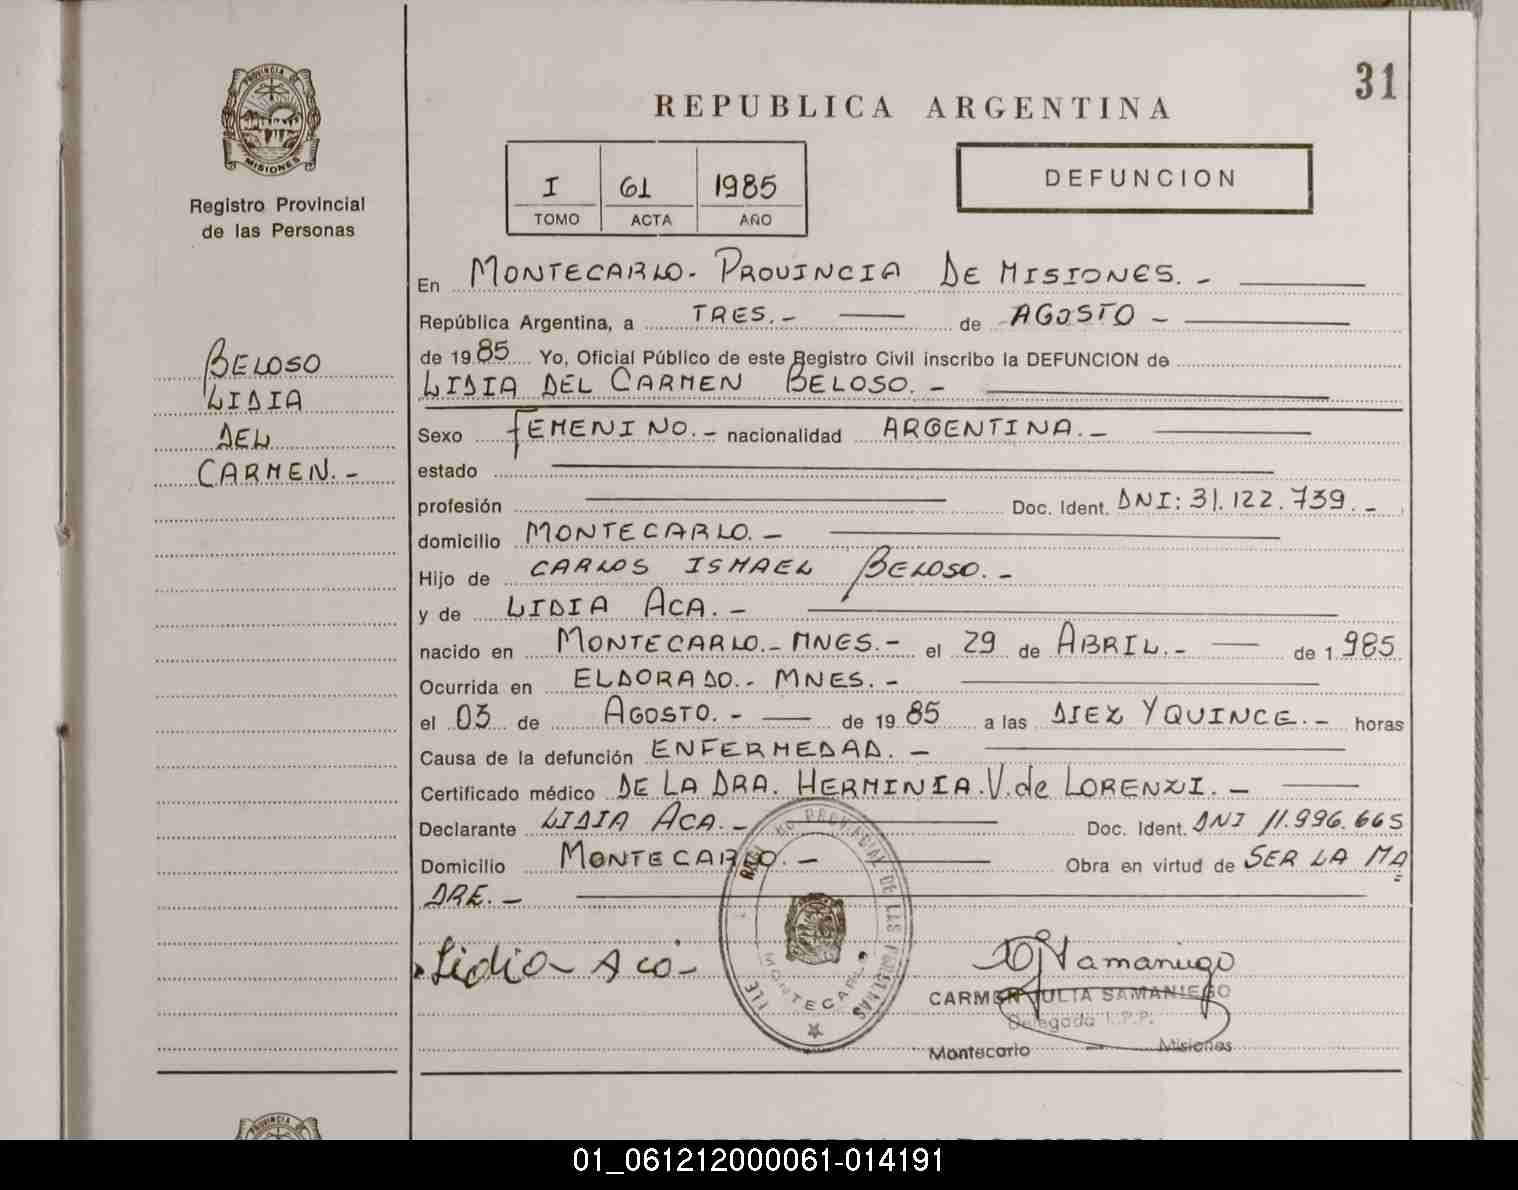 31
REPUBLICA ARGENTINA
PROVINCIA DE
MISIONES
Registro Provincial
de las Personas
I 61 1985
TOMO ACTA AÑO
DEFUNCION
BELOSO
LIDIA
DEL
CARMEN.-
En MONTECARLO- PROVINCIA DE MISIONES.-
República Argentina, a TRES.- de AGOSTO -
de 1985 Yo, Oficial Público de este Registro Civil inscribo la DEFUNCION de
LIDIA DEL CARMEN BELOSO.-
Sexo FEMENINO.- nacionalidad ARGENTINA.-
estado
profesión Doc. Ident. DNI: 31.122.739.-
domicilio MONTECARLO.-
Hijo de CARLOS ISMAEL BELOSO.-
y de LIDIA ACA.-
nacido en MONTECARLO.- MNES.- el 29 de ABRIL.- de 1985
Ocurrida en ELDORADO.- MNES.-
el 03 de AGOSTO.- de 1985 a las DIEZ Y QUINCE.- horas
Causa de la defunción ENFERMEDAD.-
Certificado médico DE LA DRA. HERMINIA.V. de LORENZI.-
Declarante LIDIA ACA.- Doc. Ident. DNI 11.996.665
Domicilio MONTECARLO.- Obra en virtud de SER LA MA
DRE.-
Lidia Aca-
PROVINCIAL DE LAS PERSONAS
MONTECARLO
Samaniego
CARMEN JULIA SAMANIEGO
Delegada
Montecarlo - Misiones
PROVINCIA
01_061212000061-014191